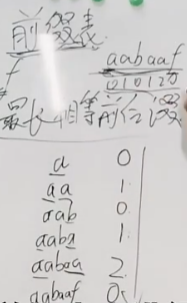 前缀表
aabaaf
010120
最长相等前后缀
a 0
aa 1
aab 0
aaba 1
aabaa 2
aabaaf 0